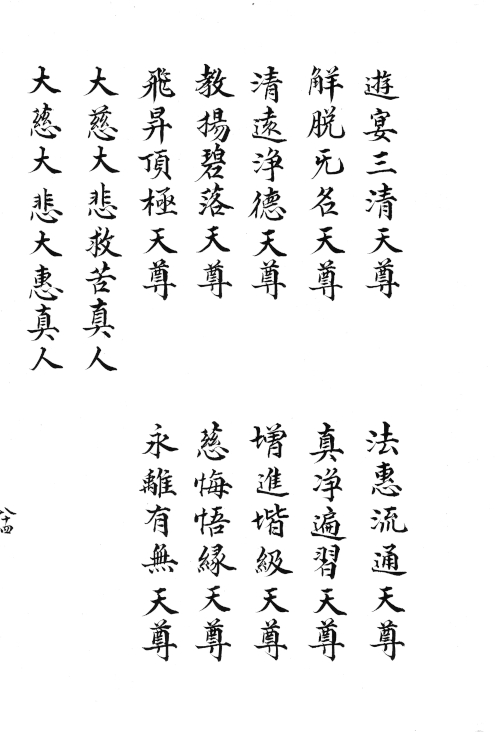 遊宴三清天尊
法惠流通天尊
解脱旡名天尊
真净遍習天尊
清遠净德天尊
增進堦級天尊
教揚碧落天尊
慈悔悟緣天尊
飛昇頂極天尊
永離有無天尊
大慈大悲救苦真人
大慈大悲大惠真人
八十四